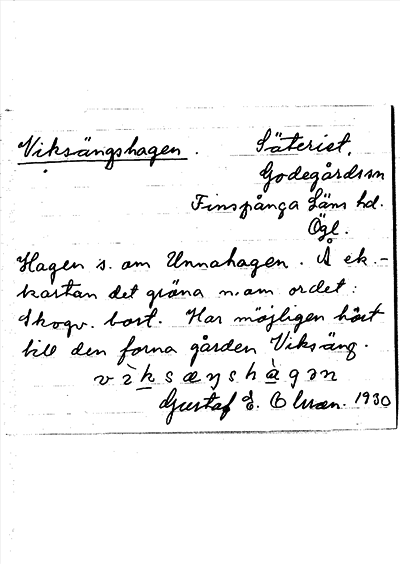 Viksängshagen. Säteriet,
Godegårds sn
Finspånga Läns hd.
Ögl.
Hagen s. om Unnahagen. Å ek.-
kartan det gröna n. om ordet:
Skogv. bost. Har möjligen hört
till den forna gården Viksäng.
Gustaf E. Olsson. 1930